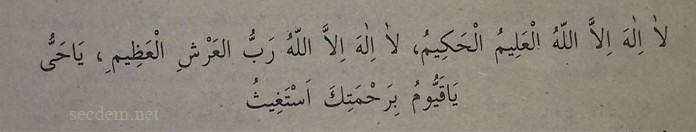 لاٰ اِلٰهَ اِلاَّ اللّٰهُ الْعَلِيمُ الْحَكِيمُ، لاٰ اِلٰهَ اِلاَّ اللّٰهُ رَبُّ العَرْشِ الْعَظِيمِ، يَاحَىُّ
يَاقَيُّومُ بِرَحْمَتِكَ اَسْتَغِيثُ
secdem.net